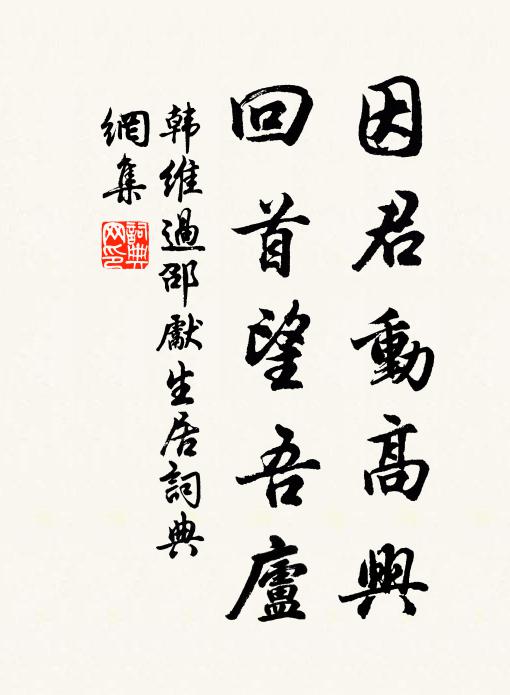 因君動高興
回首望吾廬
韩維過邵獻生居詞典
網集
詞典
网印